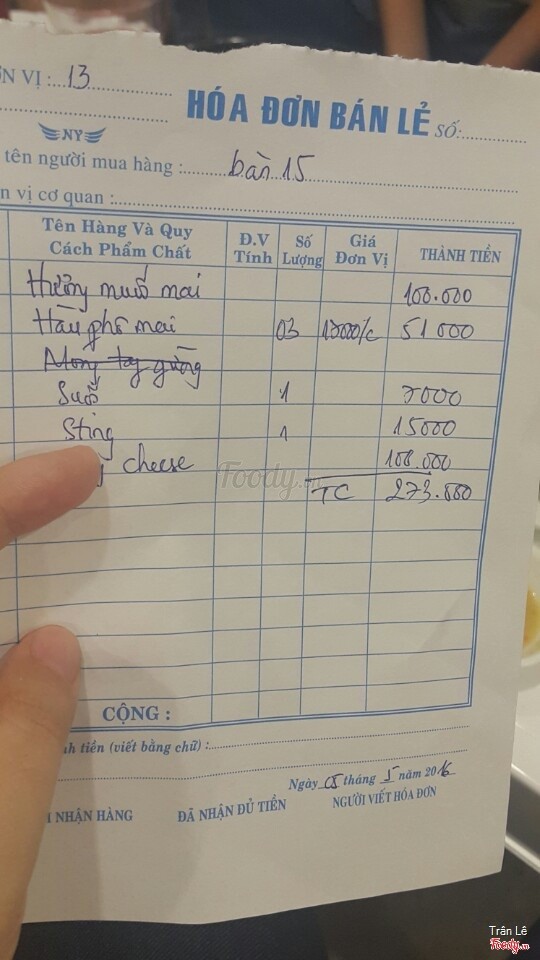 ƠN VỊ : 13
HÓA ĐƠN BÁN LẺ SỐ:
NY
tên người mua hàng : bàn 15
n vị cơ quan :
Tên Hàng Và Quy Cách Phẩm Chất Đ.V Tính Số Lượng Giá Đơn Vị THÀNH TIỀN
muối 100.000
Hàu phô mai 03 51000
Móng tay
Suối 1 7000
Sting 1 15000
cheese 100.000
Foody.vn
TC
CỘNG :
nh tiền (viết bằng chữ) :
Ngày 05 tháng 5 năm 2016
I NHẬN HÀNG ĐÃ NHẬN ĐỦ TIỀN NGƯỜI VIẾT HÓA ĐƠN
Trân Lê
Foody.vn